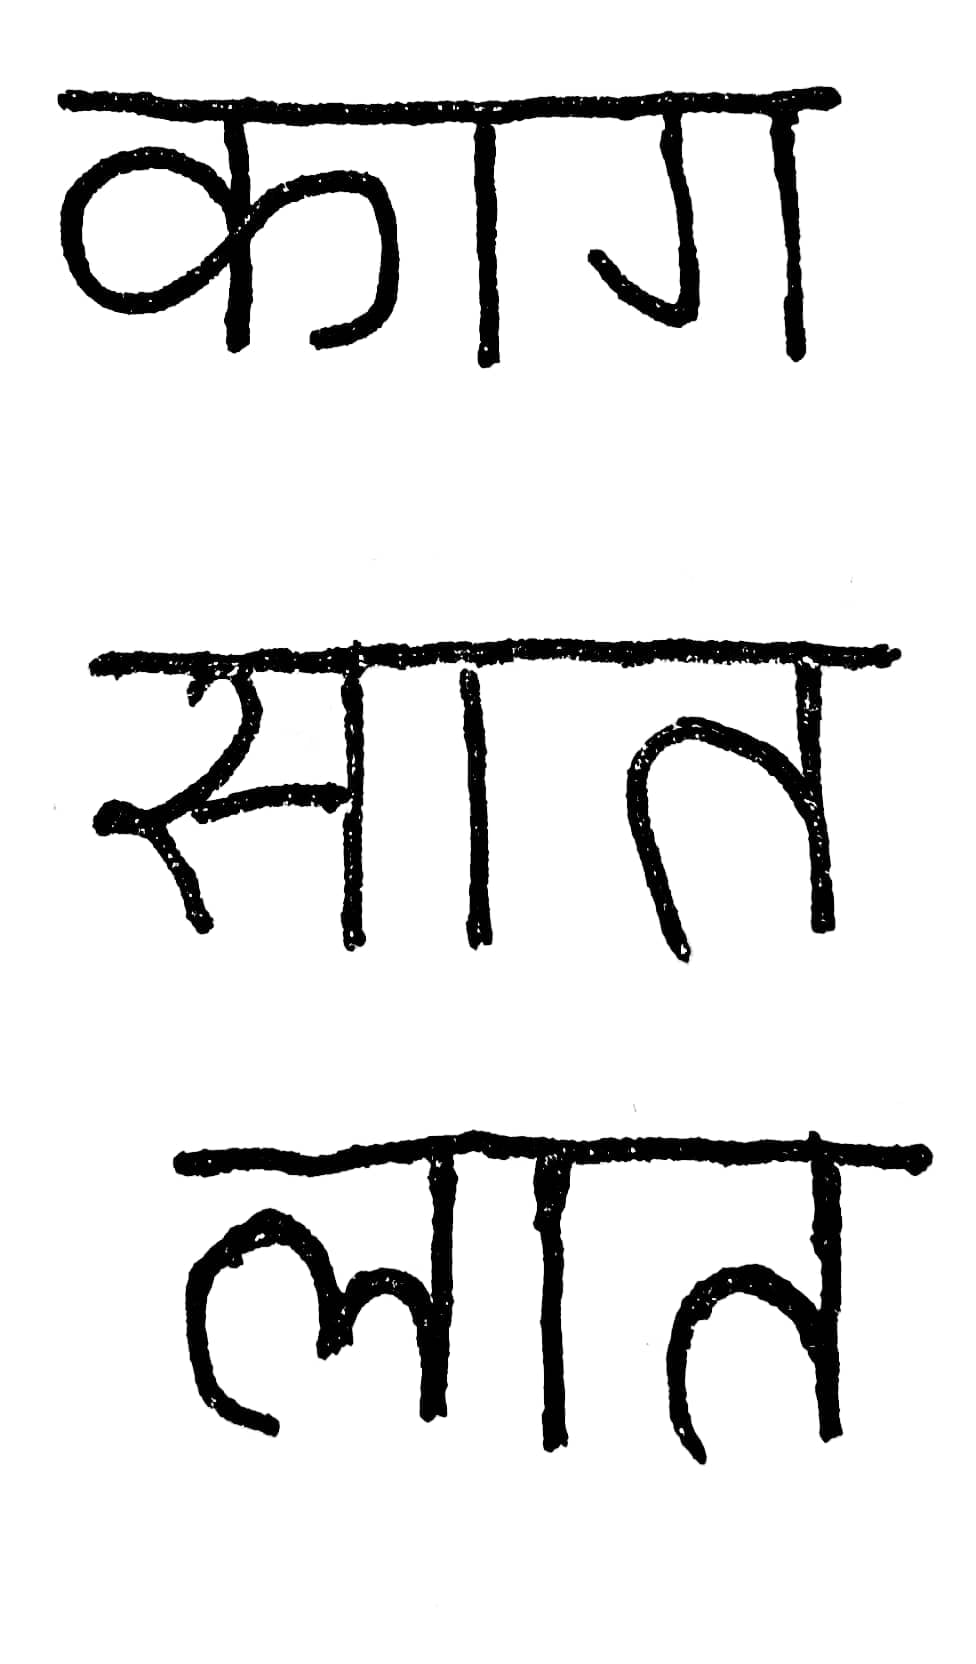 काग
सात
लात